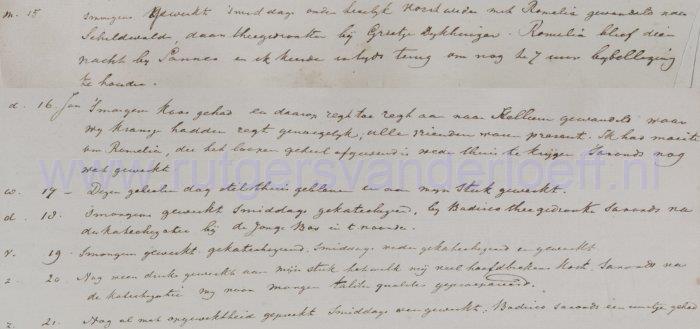 m. 15 smorgens gewerkt smiddags onder heerlyk vorst weder met Romelia gewandeld naar
Schildwolde, daar theegedronken bij Grietje Dykhuizen. Romelia bleef dien
nacht by Sannes en ik keerde intyds terug om nog te 7 uur bybellezing
te houden.
d. 16. Jan Smorgens Koos gehad en daarop regt toe regt aan naar Kolham gewandeld waar
wy kransje hadden regt genoegelyk, alle vrienden waren present. Ik had moeite
om Romelia, die het loopen geheel afgewend is weder thuis te krygen Savonds nog
wat gewerkt
www.rutgersvanderloeff.nl
w. 17 Dezen geheelen dag stil thuis gebleven en aan mijn stuk gewerkt.
d. 18. Smorgens gewerkt Smiddags gekatechiseerd, by theegedronken Savonds na
de katechizatie bij de Jonge Bos in t noorden.
v. 19. Smorgens gewerkt gekatechiseerd. Smiddags weder gekatechiseerd en gewerkt
z. 20. Nog weer druk gewerkt aan mijn stuk hetwelk mij veel hoofdbrekens kost, Savonds na
de katechizatie my voor morgen gepraepareerd.
z. 21. Nog al met opgewektheid gepreekt Smiddags weer gewerkt; savonds een eentje gehad